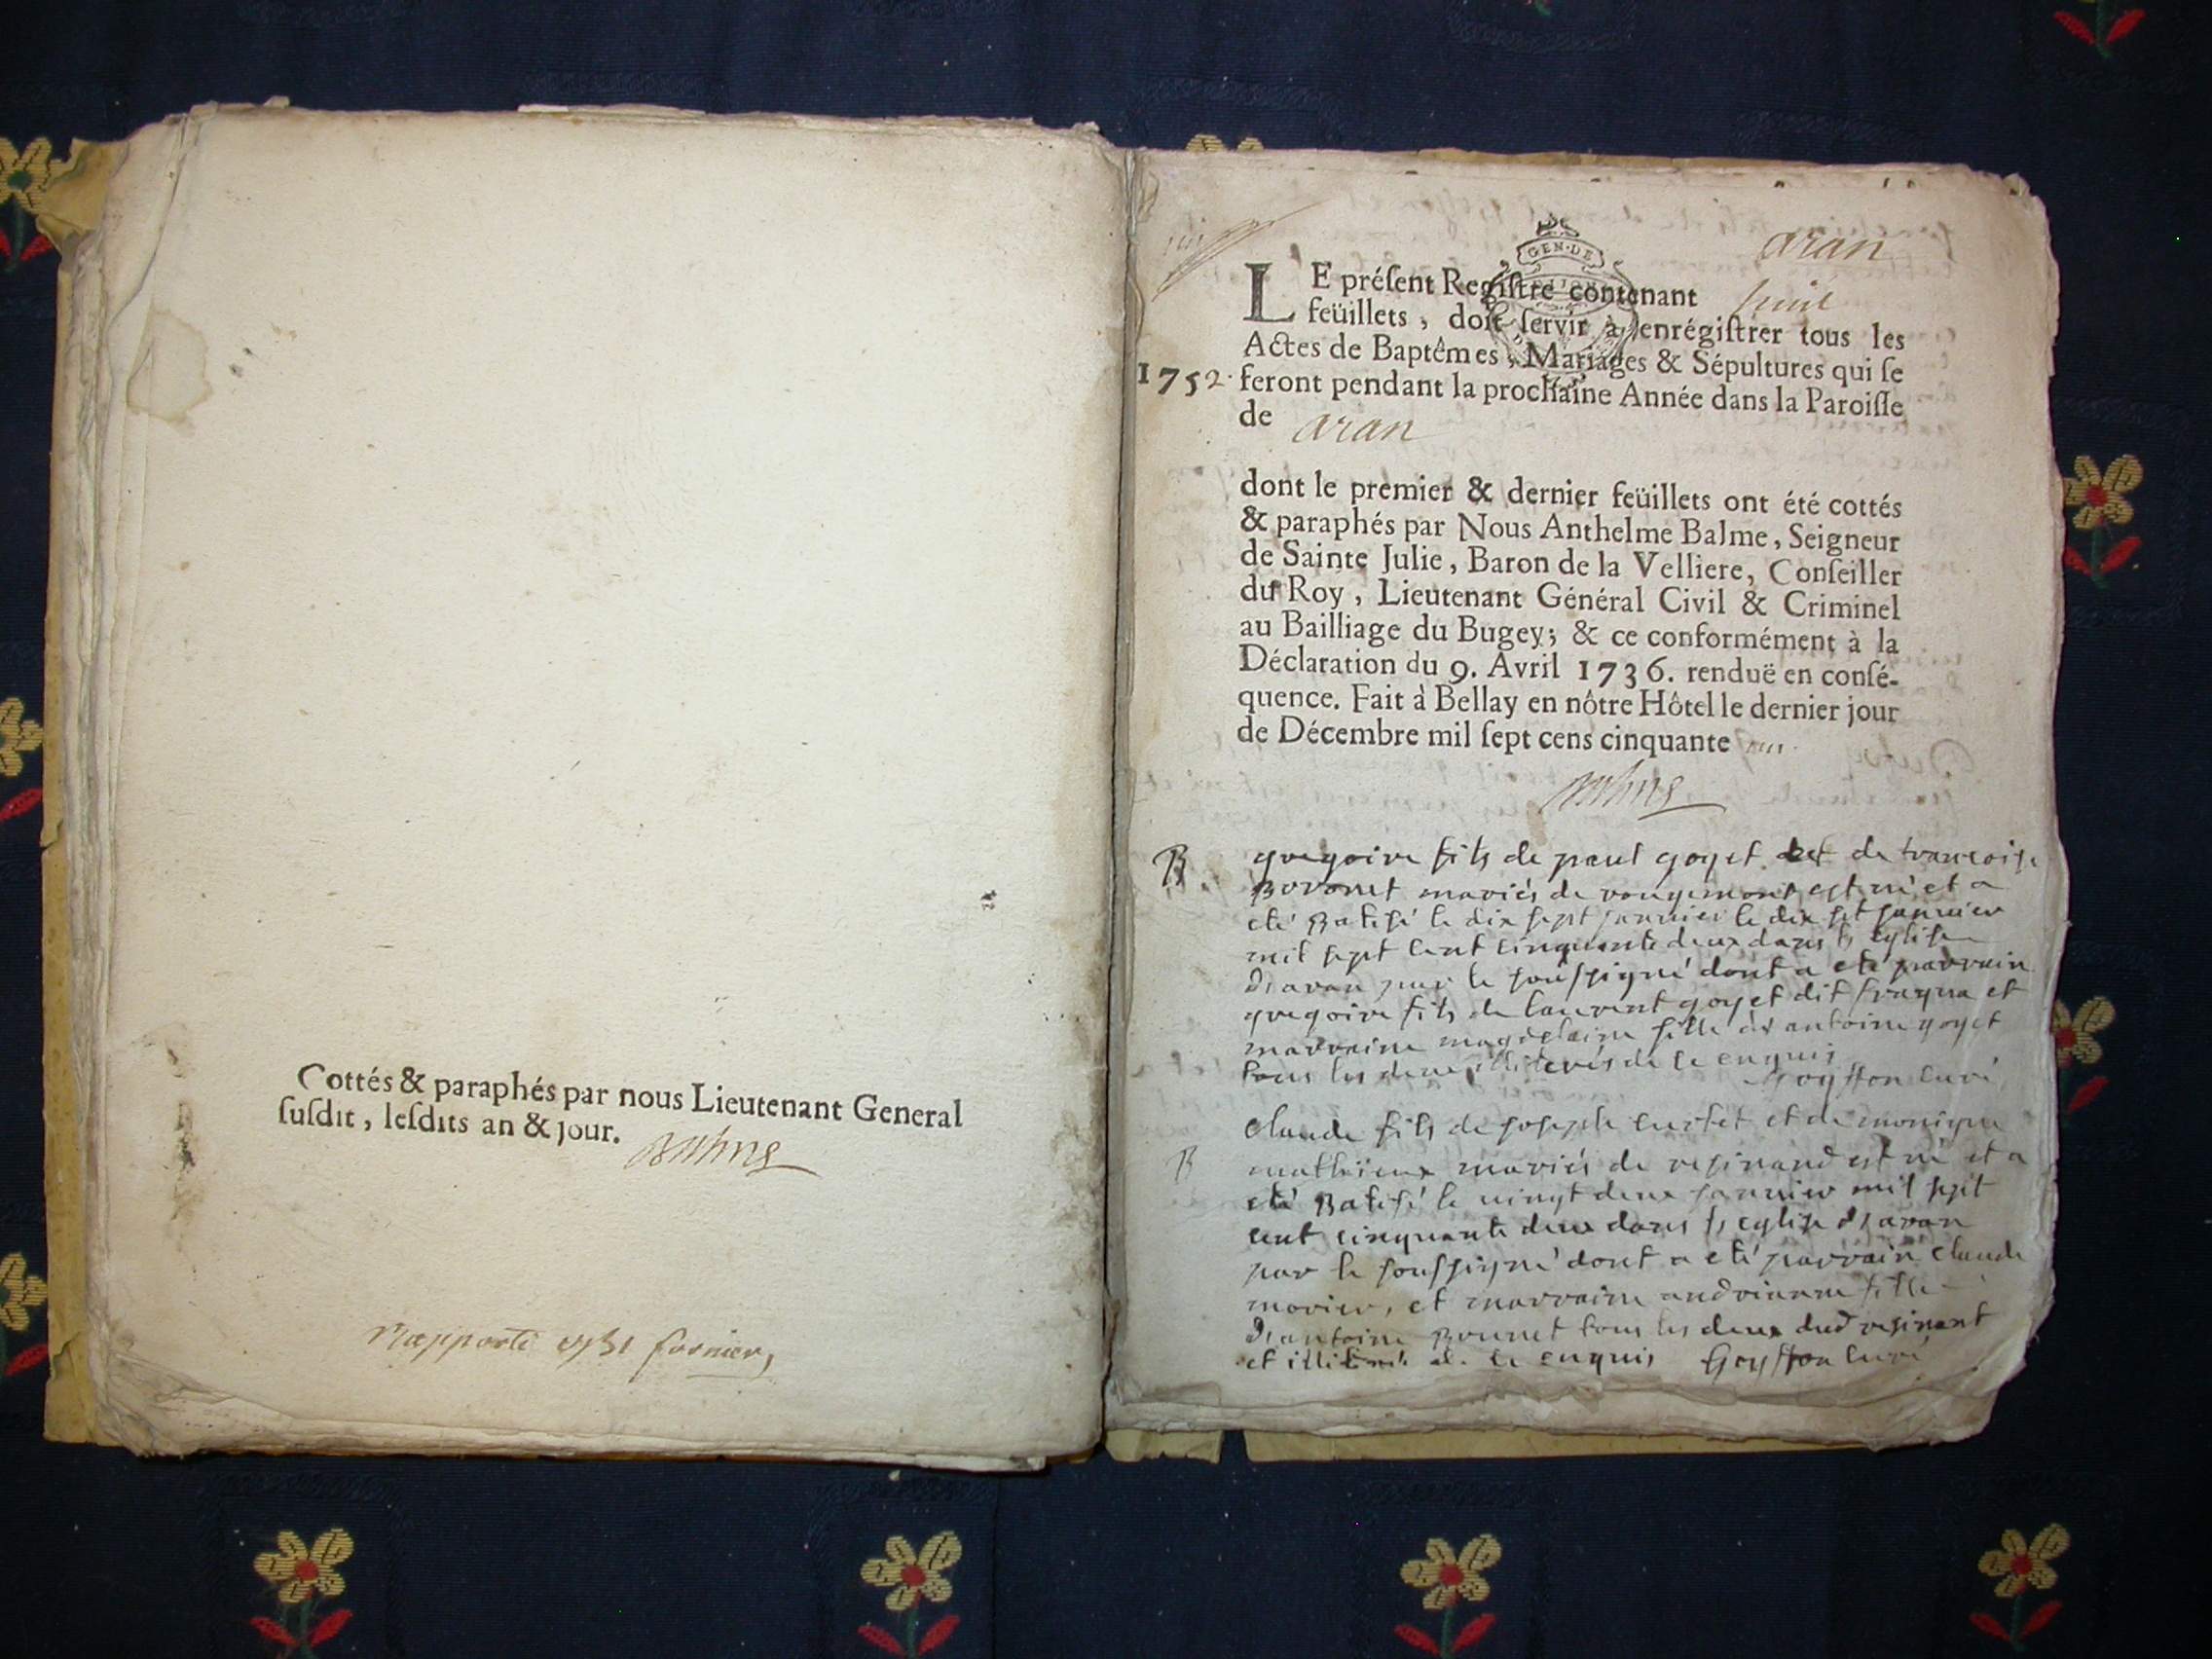 Cottés & paraphés par nous Lieutenant General
ſuſdit, leſdits an & jour.
Rapporté
aran
GEN·DE
LE préſent Regiſtre contenant huit
feüillets, doit ſervir à enrégiſtrer tous les
Actes de Baptêmes, Mariages & Sépultures qui ſe
1752. feront pendant la prochaine Année dans la Paroiſſe
de aran
dont le premier & dernier feüillets ont été cottés
& paraphés par Nous Anthelme Balme, Seigneur
de Sainte Julie, Baron de la Velliere, Conſeiller
du Roy, Lieutenant Général Civil & Criminel
au Bailliage du Bugey; & ce conformément à la
Déclaration du 9. Avril 1736. renduë en conſé-
quence. Fait à Bellay en nôtre Hôtel le dernier jour
de Décembre mil ſept cens cinquante un.
B gregoire fils de paul goyet et de francoise
Bovonet mariés de rougemont est né et a
eté Batisé le dix sept janvier le dix set janvier
mil sept cent cinquante deux dans l eglise
d'aran par le soussigné dont a eté parrain
gregoire fils de laurent goyet dit et
marraine magdelaine fille antoine goyet
tous les deux illiterés de ce enquis
Goyffon curé
claude fils de joseph et de monique
B mathieux mariés de resinand est né et a
eté Batisé le vingt deux janvier mil sept
cent cinquante deux dans l eglise d'aran
par le soussigné dont a eté parrain claude
et marraine andrianne fille
d'antoine Bonnet tous les deux dud resinant
et illiterés de ce enquis Goyffon curé